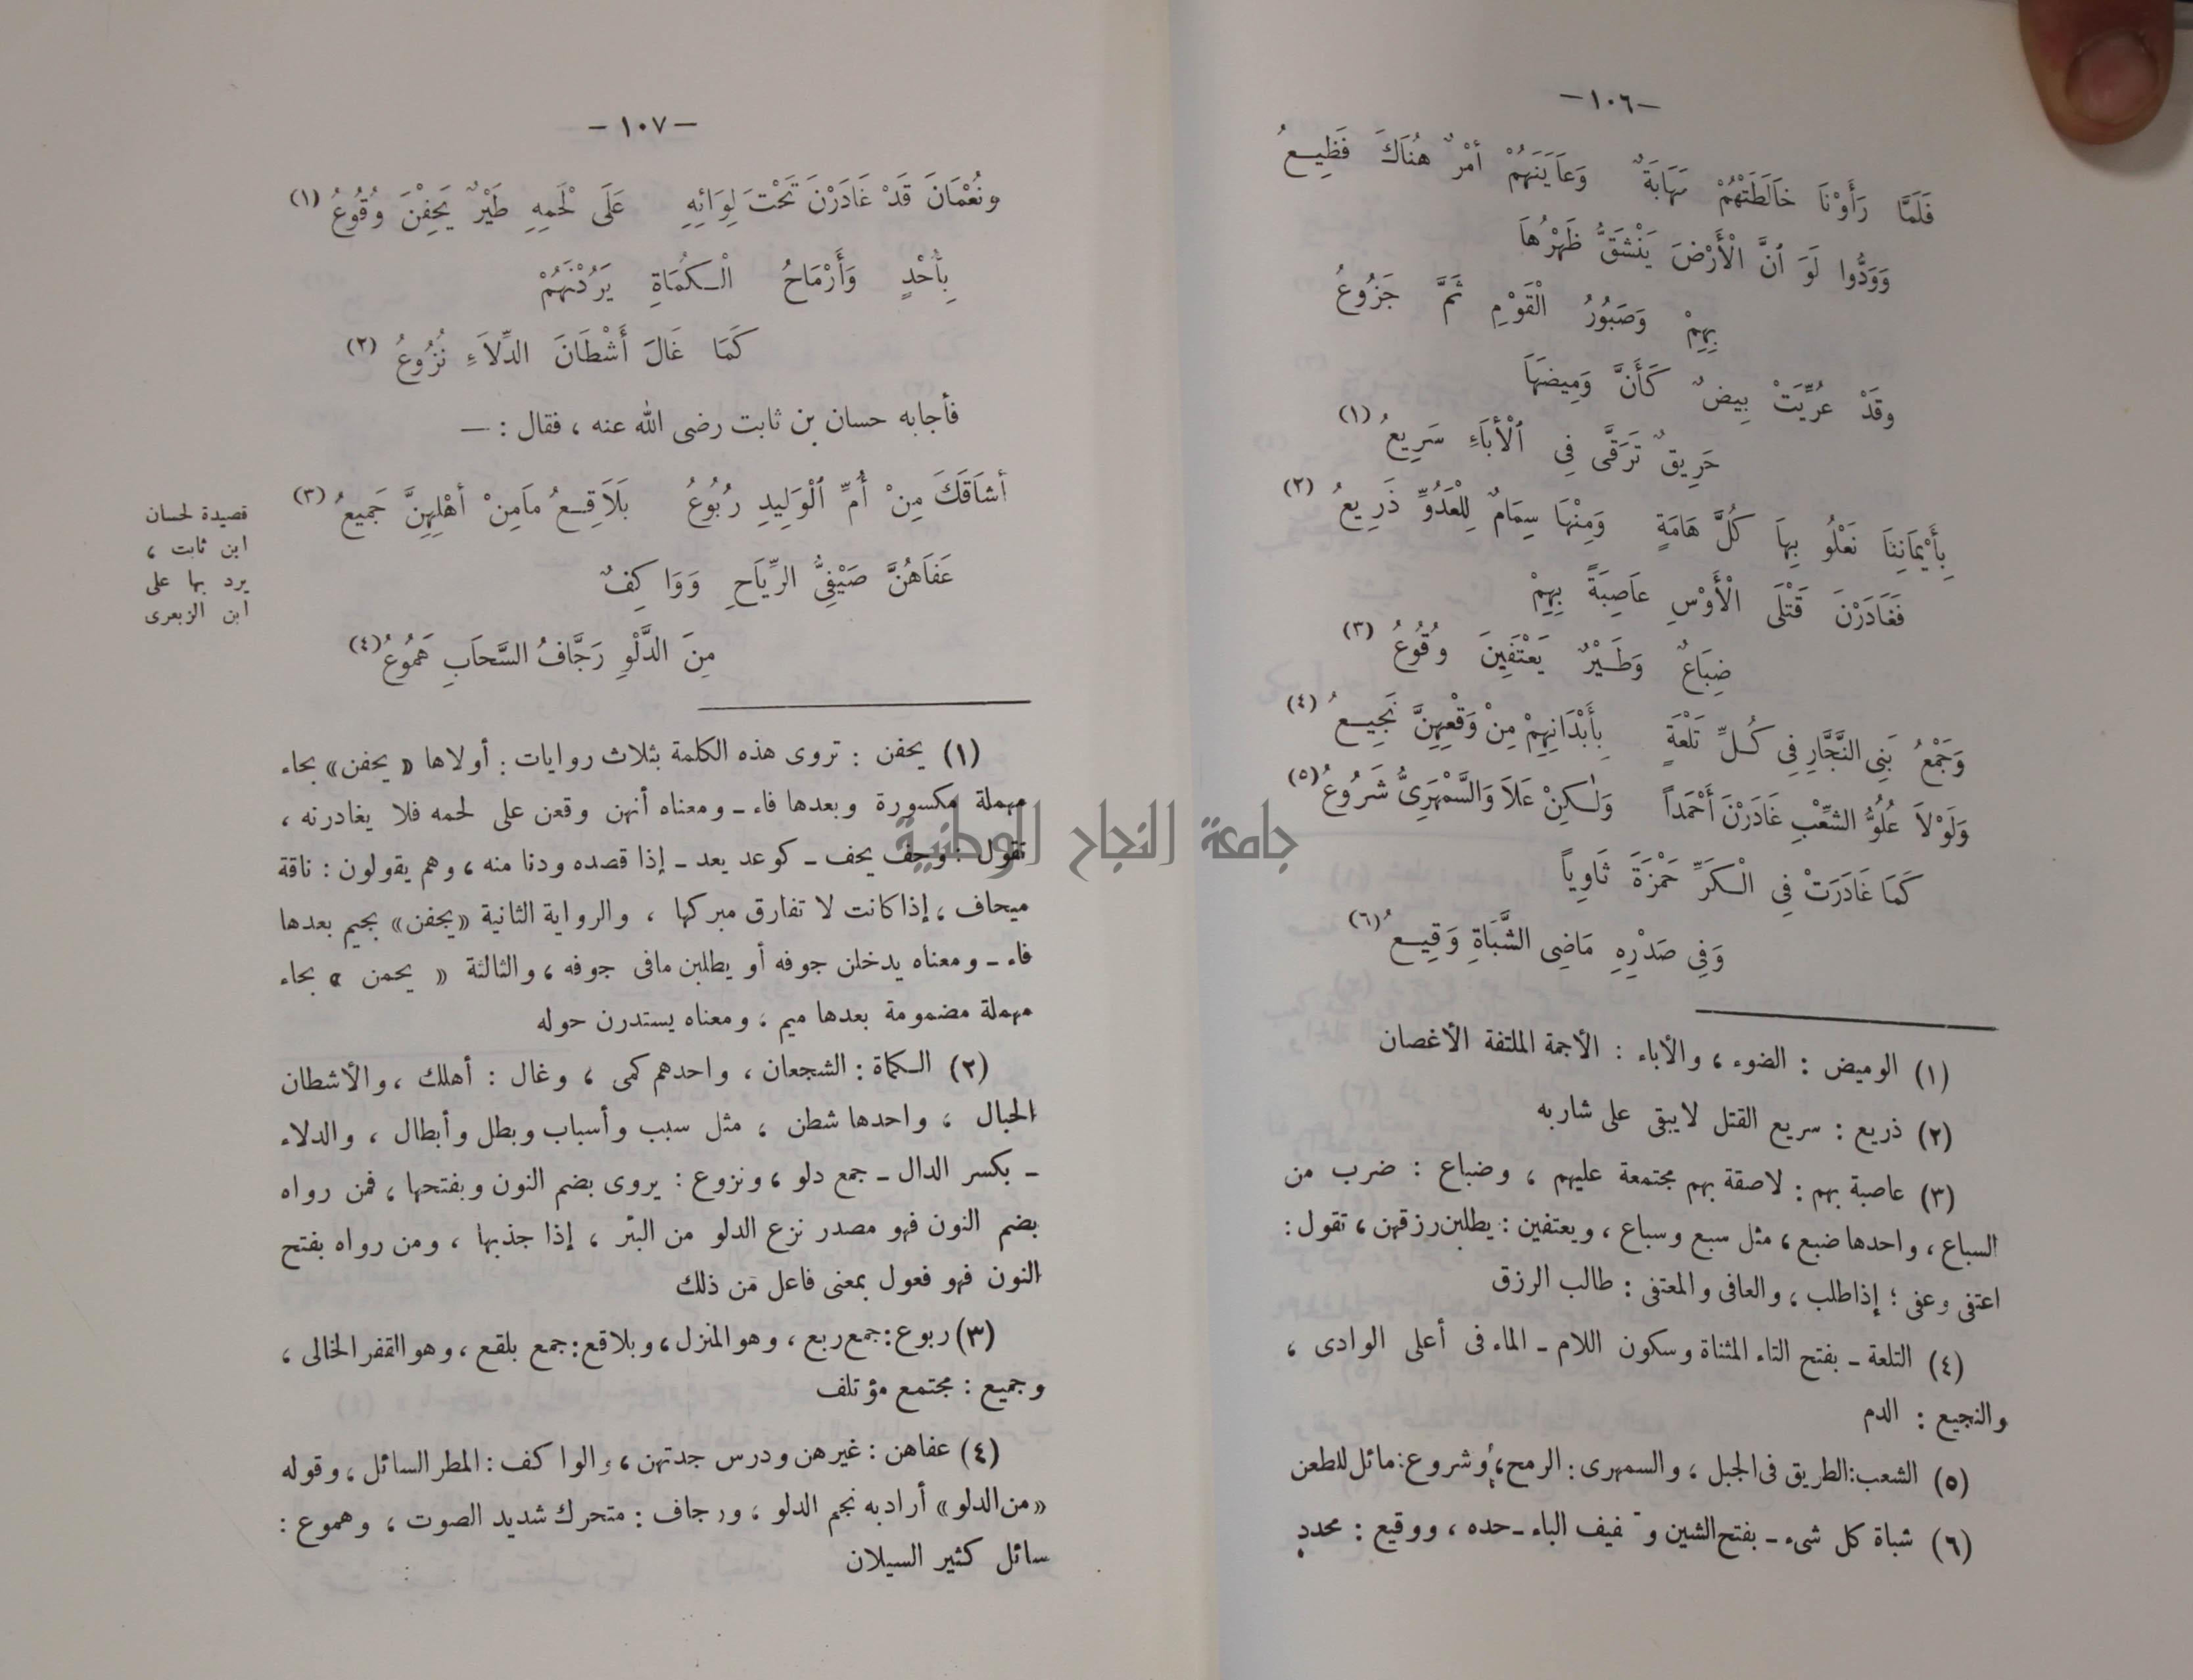 —١٠٦—
فَلَمَّا رَأَوْنَا خَالَطَتْهُمْ مَهَابَةٌ وَعَايَنَهُمْ أَمْرٌ هُنَاكَ فَظِيعُ
وَوَدُّوا لَوَ أنَّ الْأَرْضَ يَنْشَقُّ ظَهْرُهَا
بِهِمْ وَصَبُورُ الْقَوْمِ ثَمَّ جَزُوعُ
وقَدْ عُرِّيَتْ بِيضٌ كَأَنَّ وَمِيضَهَا
حَرِيقٌ تَرَقَّى فِي الْأبَاءِ سَرِيعُ (١)
بِأَيْمَانِنَا نَعْلُو بِهَا كُلَّ هَامَةٍ وَمِنْهَا سِمَامٌ لِلْعَدُوِّ ذَرِيعُ (٢)
فَغَادَرْنَ قَتْلَى الْأَوْسِ عَاصِبَةً بِهِمْ
ضِبَاعٌ وَطَيْرٌ يَعْتَفِينَ وُقُوعُ (٣)
وَجَمْعُ بَنِى النَّجَّارِ فِي كُلِّ تَلْعَةٍ بِأَبْدَانِهِمْ مِنْ وَقْعِهِنَّ نَجِيعُ (٤)
وَلَوْلَا عُلُوُّ الشِّعْبِ غَادَرْنَ أَحْمَداً وَلَكِنْ عَلَا وَالسَّمْهَرِىُّ شَرُوعُ (٥)
كَمَا غَادَرَتْ فِي الْكَرِّ حَمْزَةَ ثَاوِياً
وَفِي صَدْرِهِ مَاضِى الشَّبَاةِ وَقِيعُ (٦)
(١) الوميض : الضوء ، والأباء : الأجمة الملتفة الأغصان
(٢) ذريع : سريع القتل لا يبقى على شاربه
(٣) عاصبة بهم : لاصقة بهم مجتمعة عليهم ، وضباع : ضرب من
السباع ، واحدها ضبع ، مثل سبع وسباع ، ويعتفين : يطلبن رزقهن ، تقول :
اعتفى وعفى ؛ إذا طلب ، والعافى والمعتفى : طالب الرزق
(٤) التلعة ـ بفتح التاء المثناة وسكون اللام ـ الماء فى أعلى الوادى ،
والنجيع : الدم
(٥) الشعب : الطريق فى الجبل ، والسمهرى : الرمح ، وشروع : مائل للطعن
(٦) شباة كل شىء ـ بفتح الشين و فيف الباء ـ حده ، ووقيع : محدد
— ١٠٧ —
ونُعْمَانَ قَدْ غَادَرْنَ تَحْتَ لِوَائِهِ عَلَى لَحْمِهِ طَيْرٌ يَحِفْنَ وُقُوعُ (١)
بِأُحْدٍ وَأَرْمَاحُ الْكُمَاةِ يَرُدْنَهُمْ
كَمَا غَالَ أَشْطَانَ الدِّلَاءِ نُزُوعُ (٢)
فأجابه حسان بن ثابت رضى الله عنه ، فقال : —
أشَاقَكَ مِنْ أُمِّ الْوَلِيدِ رُبُوعُ بَلَاقِعُ مَا مِنْ أهْلِهِنَّ جَمِيعُ (٣)
عَفَاهُنَّ صَيْفِيُّ الرِّيَاحِ وَوَاكِفٌ
مِنَ الدَّلْوِ رَجَّافُ السَّحَابِ هَمُوعُ (٤)
قصيدة لحسان
ابن ثابت ،
يرد بها على
ابن الزبعرى
(١) يحفن : تروى هذه الكلمة بثلاث روايات : أولاها « يحفن » بحاء
مهملة مكسورة وبعدها فاء ـ ومعناه أنهن وقعن على لحمه فلا يغادرنه ،
تقول : وحف يحف ـ كوعد يعد ـ إذا قصده ودنا منه ، وهم يقولون : ناقة
ميحاف ، إذا كانت لا تفارق مبركها ، والرواية الثانية « يجفن » بجيم بعدها
فاء ـ ومعناه يدخلن جوفه أو يطلبن مافى جوفه ، والثالثة « يحمن » بحاء
مهملة مضمومة بعدها ميم ، ومعناه يستدرن حوله
(٢) الكماة : الشجعان ، واحدهم كمى ، وغال : أهلك ، والأشطان
الحبال ، واحدها شطن ، مثل سبب وأسباب وبطل وأبطال ، والدلاء
ـ بكسر الدال ـ جمع دلو ، ونزوع : يروى بضم النون وبفتحها ، فمن رواه
بضم النون فهو مصدر نزع الدلو من البئر ، إذا جذبها ، ومن رواه بفتح
النون فهو فعول بمعنى فاعل من ذلك
(٣) ربوع : جمع ربع ، وهو المنزل ، وبلاقع : جمع بلقع ، وهو القفر الخالى ،
وجميع : مجتمع مؤتلف
(٤) عفاهن : غيرهن ودرس جدتهن ، والواكف : المطر السائل ، وقوله
« من الدلو » أراد به نجم الدلو ، ورجاف : متحرك شديد الصوت ، وهموع :
سائل كثير السيلان
جامعة النجاح الوطنية